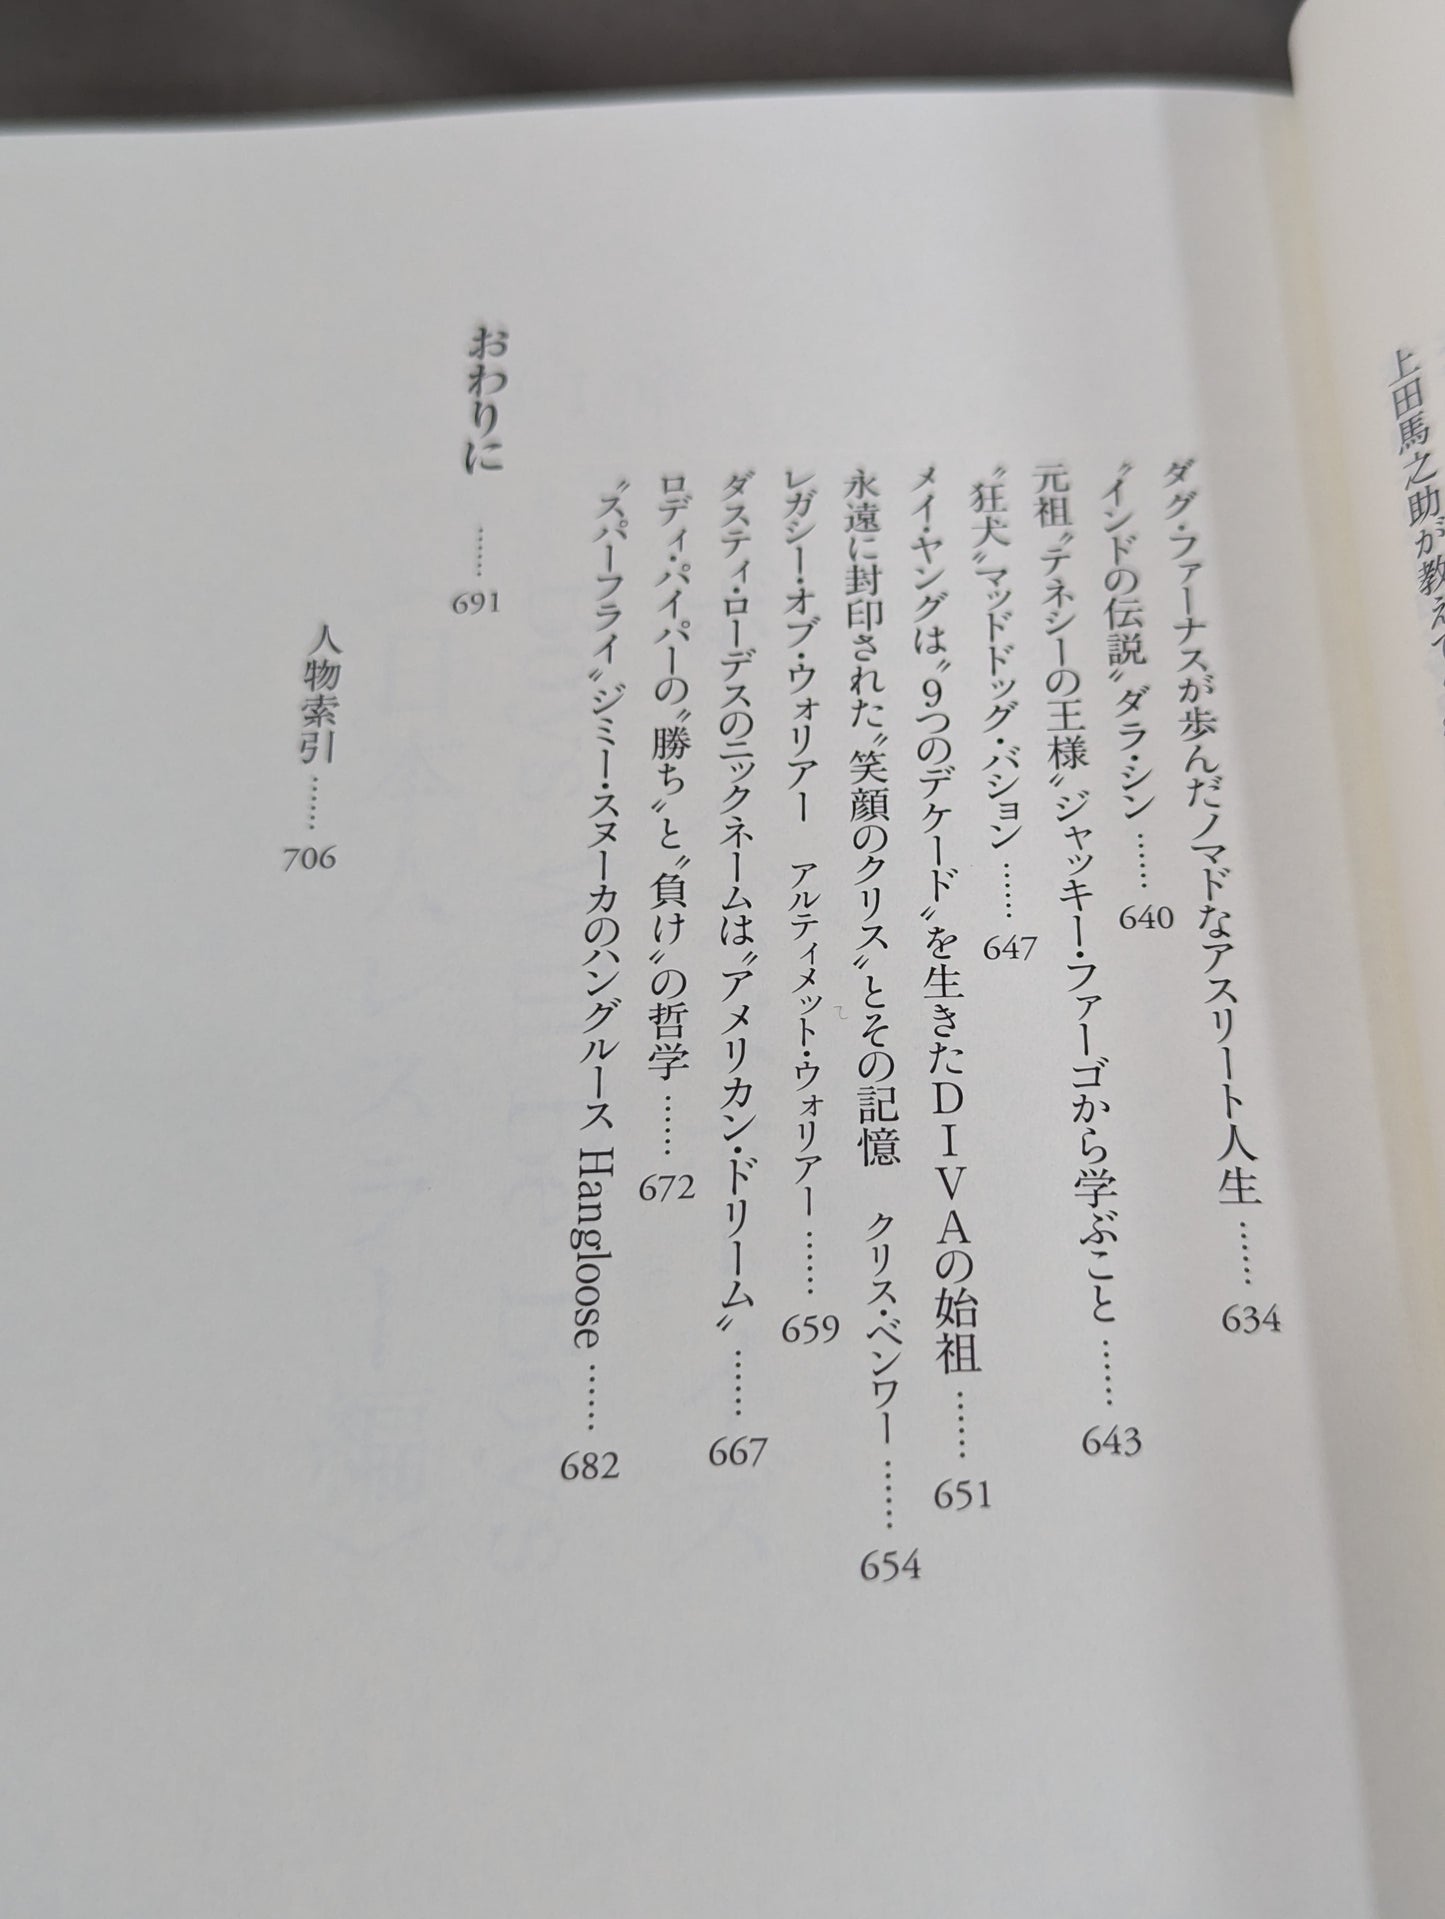 上田馬之助が教えて
ダグ・ファーナスが歩んだノマドなアスリート人生……634
〝インドの伝説〟ダラ・シン……640
元祖〝テネシーの王様〟ジャッキー・ファーゴから学ぶこと……643
〝狂犬〟マッドドッグ・バション……647
メイ・ヤングは〝9つのデケード〟を生きたDIVAの始祖……651
永遠に封印された〝笑顔のクリス〟とその記憶　クリス・ベンワー……654
レガシー・オブ・ウォリアー　アルティメット・ウォリアー……659
ダスティ・ローデスのニックネームは〝アメリカン・ドリーム〟……667
ロディ・パイパーの〝勝ち〟と〝負け〟の哲学……672
〝スパーフライ〟ジミー・スヌーカのハングルース Hangloose……682
おわりに……691
人物索引……706